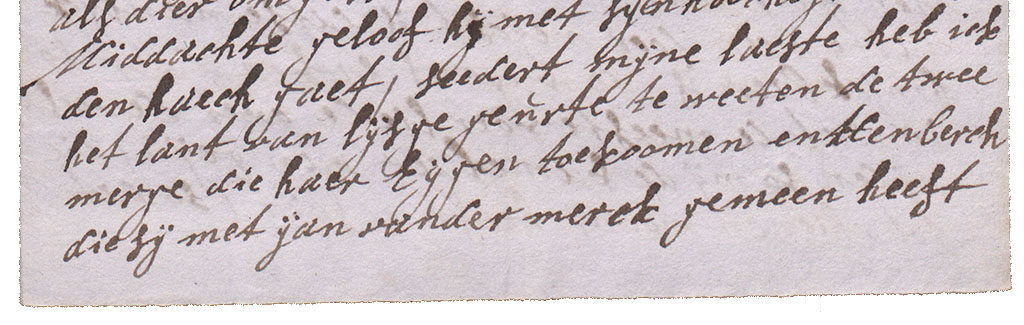 als dier
Middachte geloof hÿ met syn
den haech gaet / seedert mÿne laeste heb ick
het lant van lÿsge geurte te weeten de twee
merge die haer Eÿgen toekoomen en den berch
die sÿ met ÿan vander merck gemeen heeft